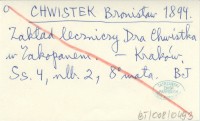 CHWISTEK Bronisław 1894.
Zakład leczniczy Dra Chwistka
w Zakopanem. – Kraków,
Ss. 4, nlb. 2, 8° mała. BJ
BJ/CO8/0493